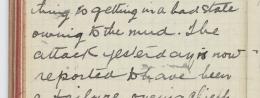 thing is getting in a bad state
owing to the mud. The
attack yesterday is now
reported to have been
a failure owing chiefly